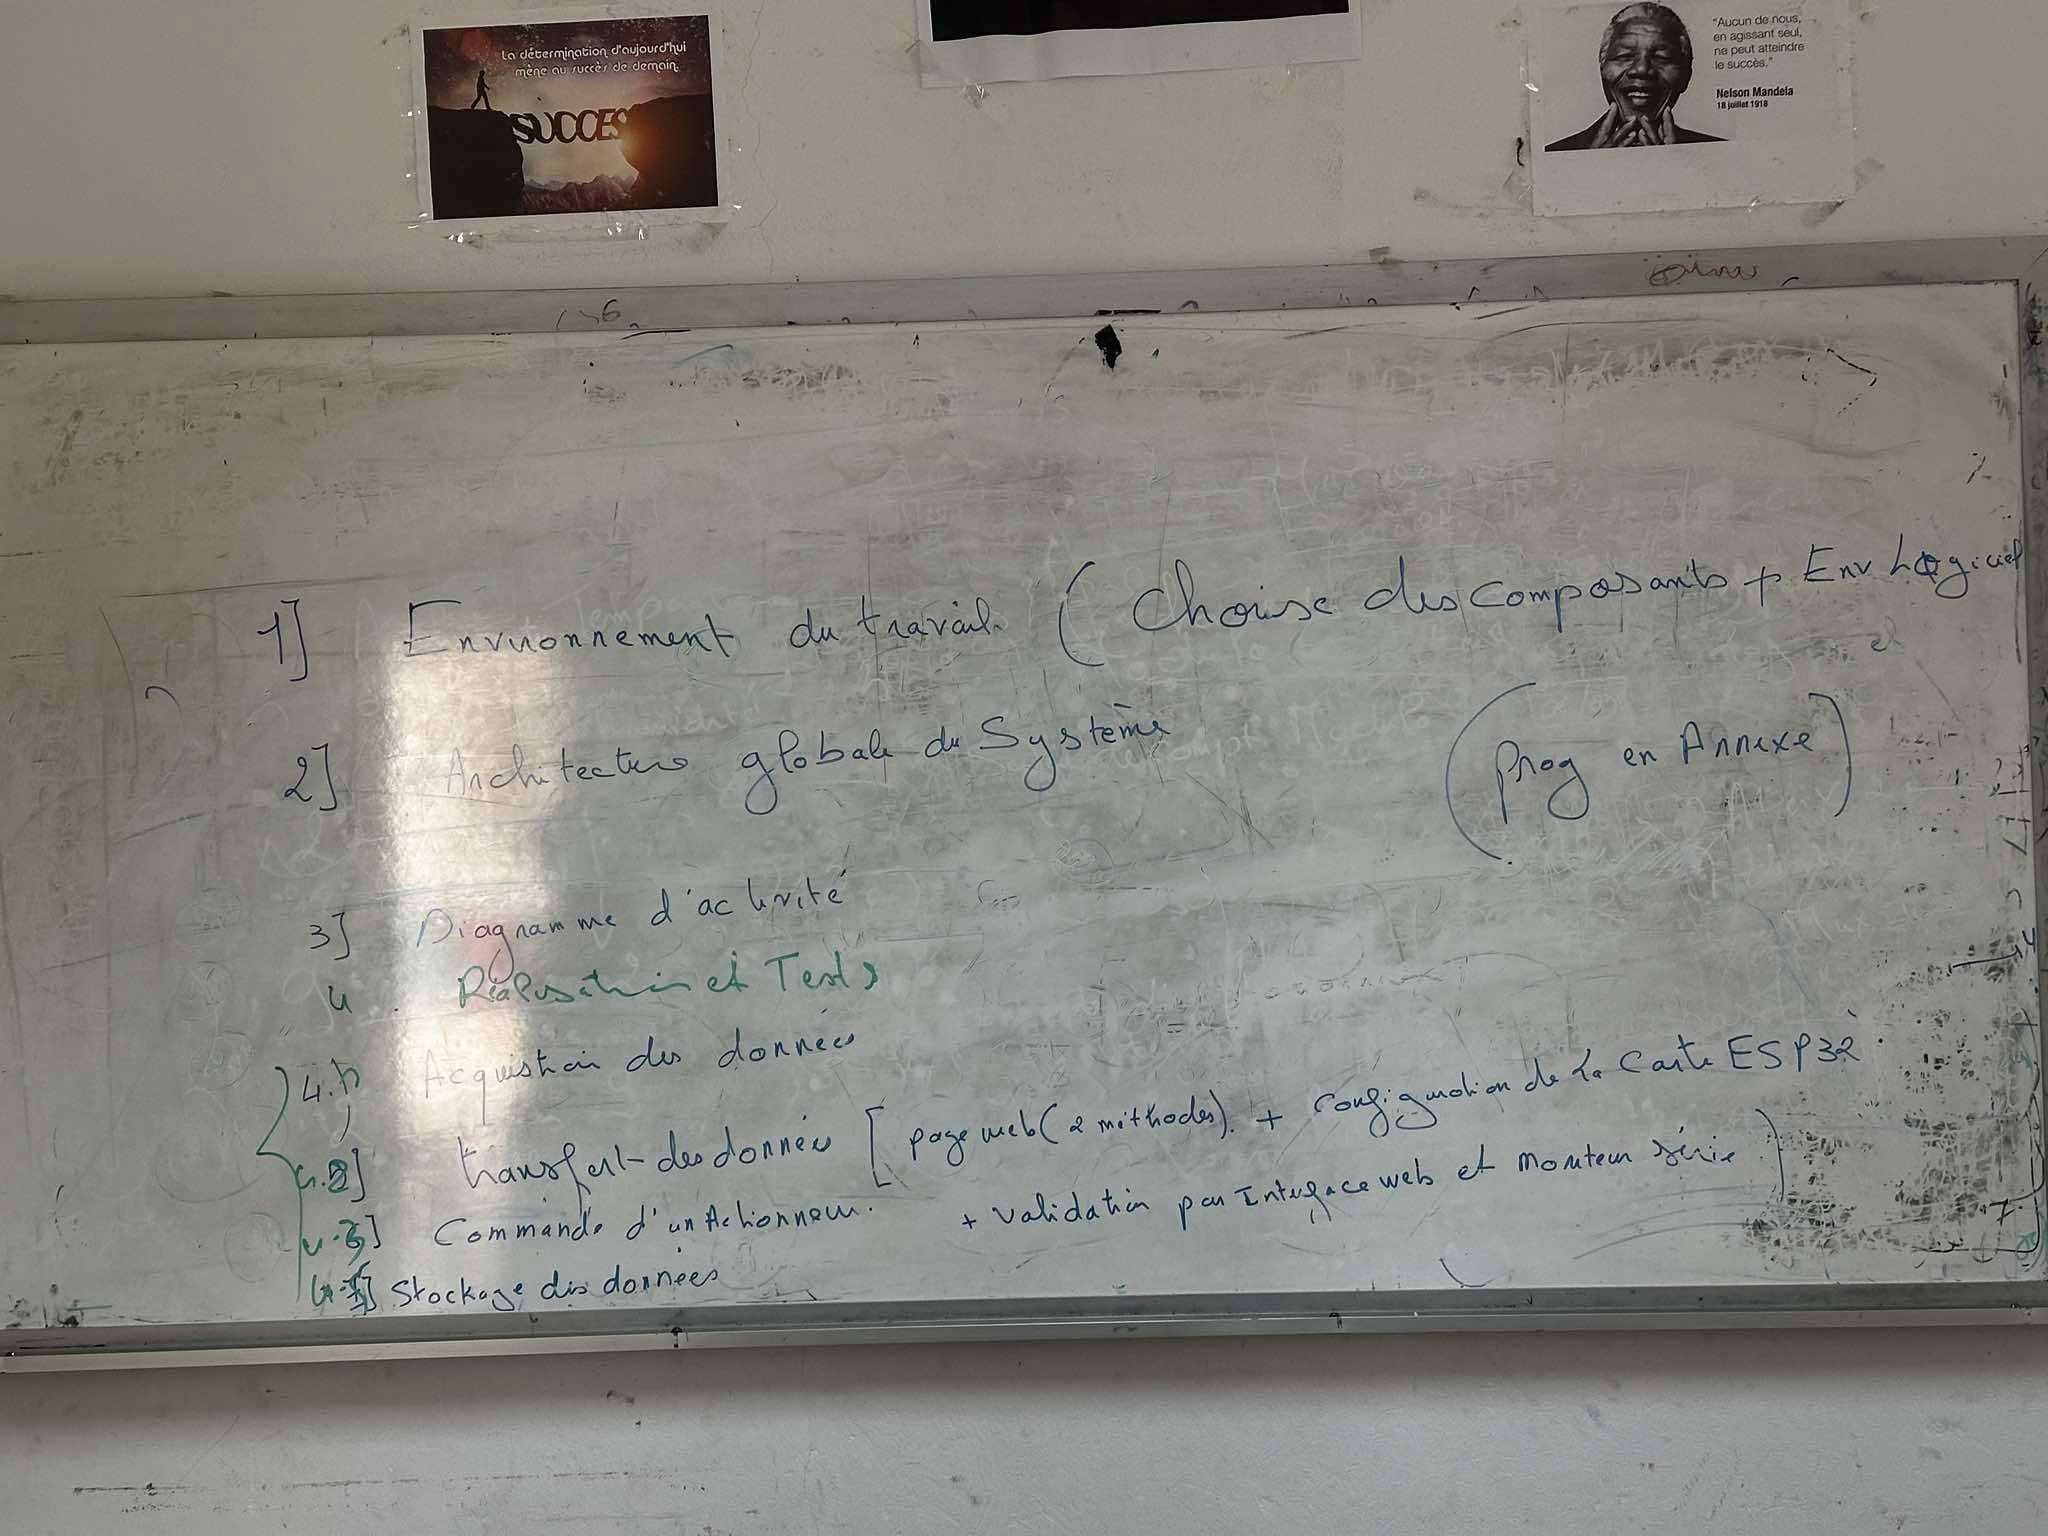 La détermination d'aujourd'hui
mène au succès de demain.
SUCCES
"Aucun de nous,
en agissant seul,
ne peut atteindre
le succès."
Nelson Mandela
18 juillet 1918
1] Environnement du travail. ( Choise des composants + Env Logiciel
2] Architecture globale du Système (prog en Annexe)
3] Diagramme d'activité
4. Réalisation et Tests
4.1) Acquisition des données
4.2] transfert des données [ page web (2 méthodes). + configuration de la Carte ESP32
+ validation par Interface web et moniteur série )
4.3] Commande d'un Actionneur.
4.4] Stockage des données